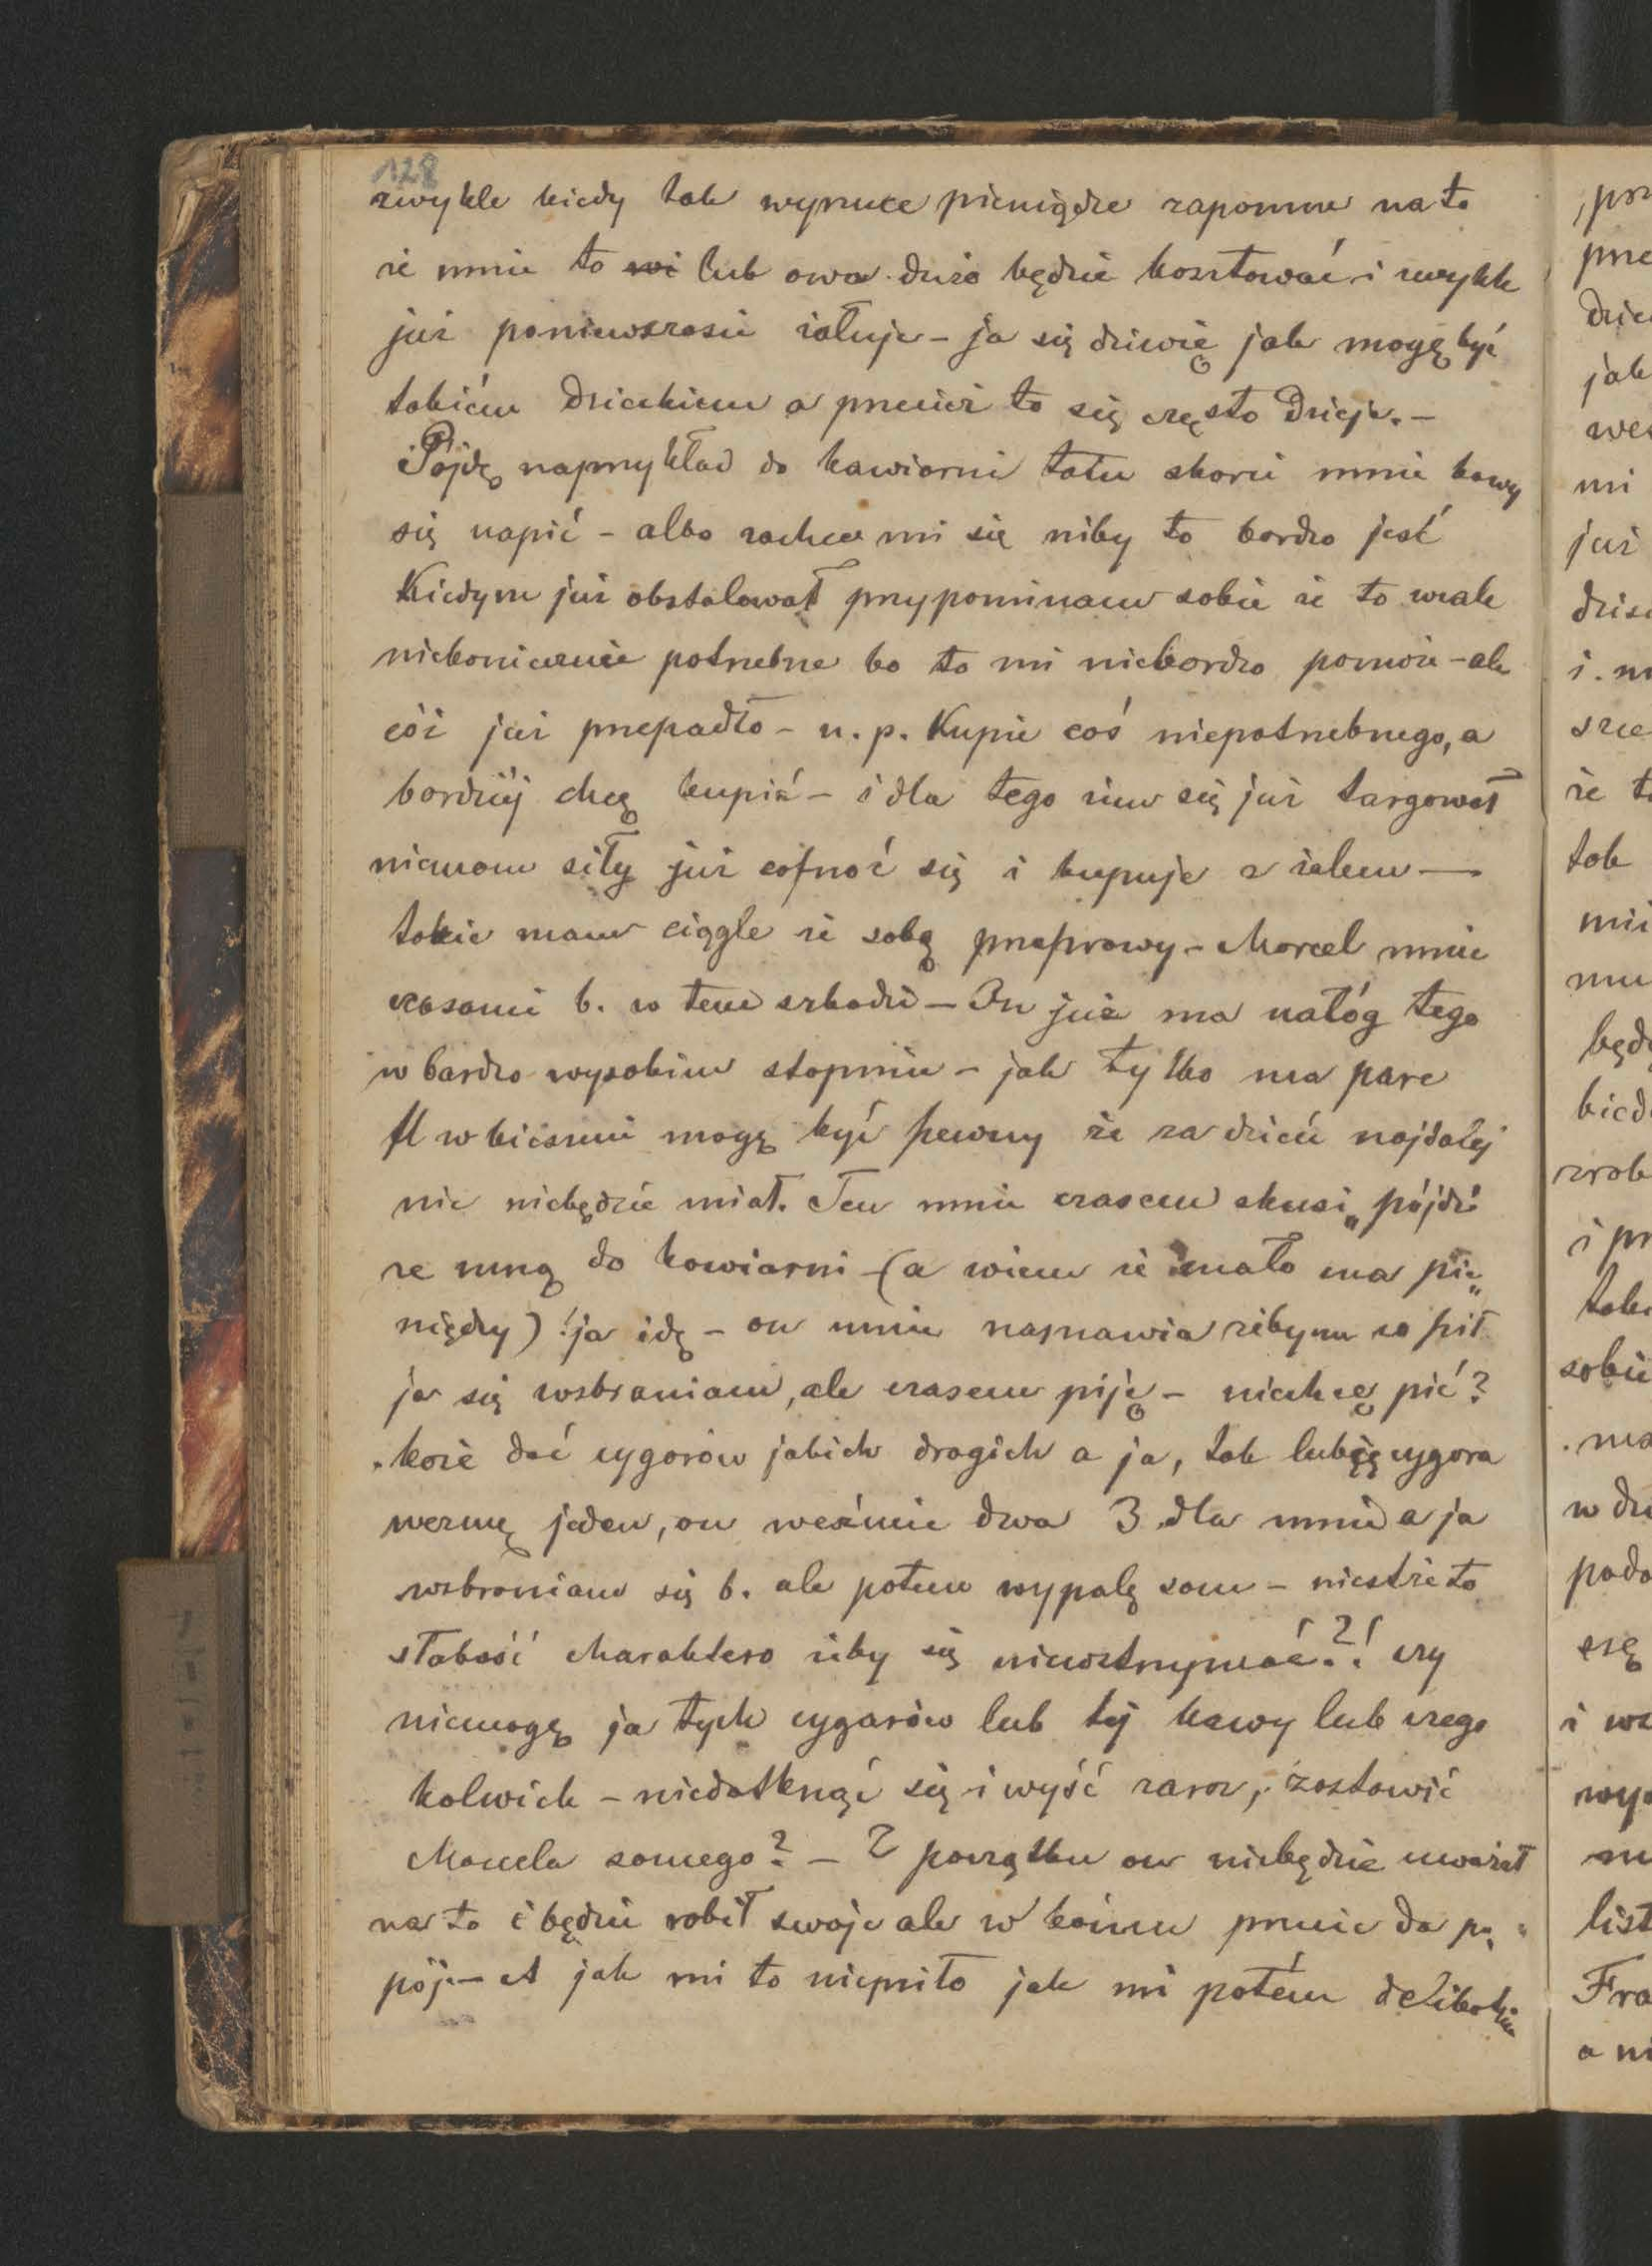 128
zwykle kiedy tak wyrzuce pieniądze zapomne na to
że mnie to lub owo dużo będzie kosztować i zwykle
już poniewczasie żałuje – ja się dziwię jak mogę być
takiém dzieckiem a przecież to się często dzieje. –
Pójdę naprzykład do kawiarni tatu skorci mnie kawy
się napić – albo zachce mi się niby to bardzo jeść
Kiedym już obstalował przypominam sobie że to wcale
niekoniecznie potrzebne bo to mi niebardzo pomoże – ale
cóż już przepadło – n. p. Kupie coś niepotrzebnego, a
bardziéj chcę kupić – i dla tego żem się już targował
niemam siły już cofnoć się i kupuje z żalem —
takie mam ciągle ze sobą przeprawy – Marcel mnie
czasami b. w tem szkodzi – On już ma nałóg tego
w bardzo wysokim stopniu – jak tylko ma pare
fl w kieszeni mogę być pewny że za dzień najdalej
nic niebędzie miał. Ten mnie czasem skusi „pójdź
ze mną do kawiarni – (a wiem że mało ma pie„
niędzy)! ja idę – on mnie namawia żebym co pił
ja się wzbraniam, ale czasem piję – niechcę pić?
każe dać cygarów jakich drogich a ja, tak lubię cygara
wezmę jeden, on weźmie dwa 3 dla mnie a ja
wzbraniam się b. ale potem wypalę sam – niestże to
słabość charakteru żeby się niewstrzymać?! czy
niemogę ja tych cygarów lub téj kawy lub czego
kolwiek – niedotknąć się i wyść zaraz, zostawić
Marcela samego? – Z początku on niebędzie uważał
na to i będzie robił swoje ale w końcu prznie da po
kój – A jak mi to niemiło jak mi potém delikatnie